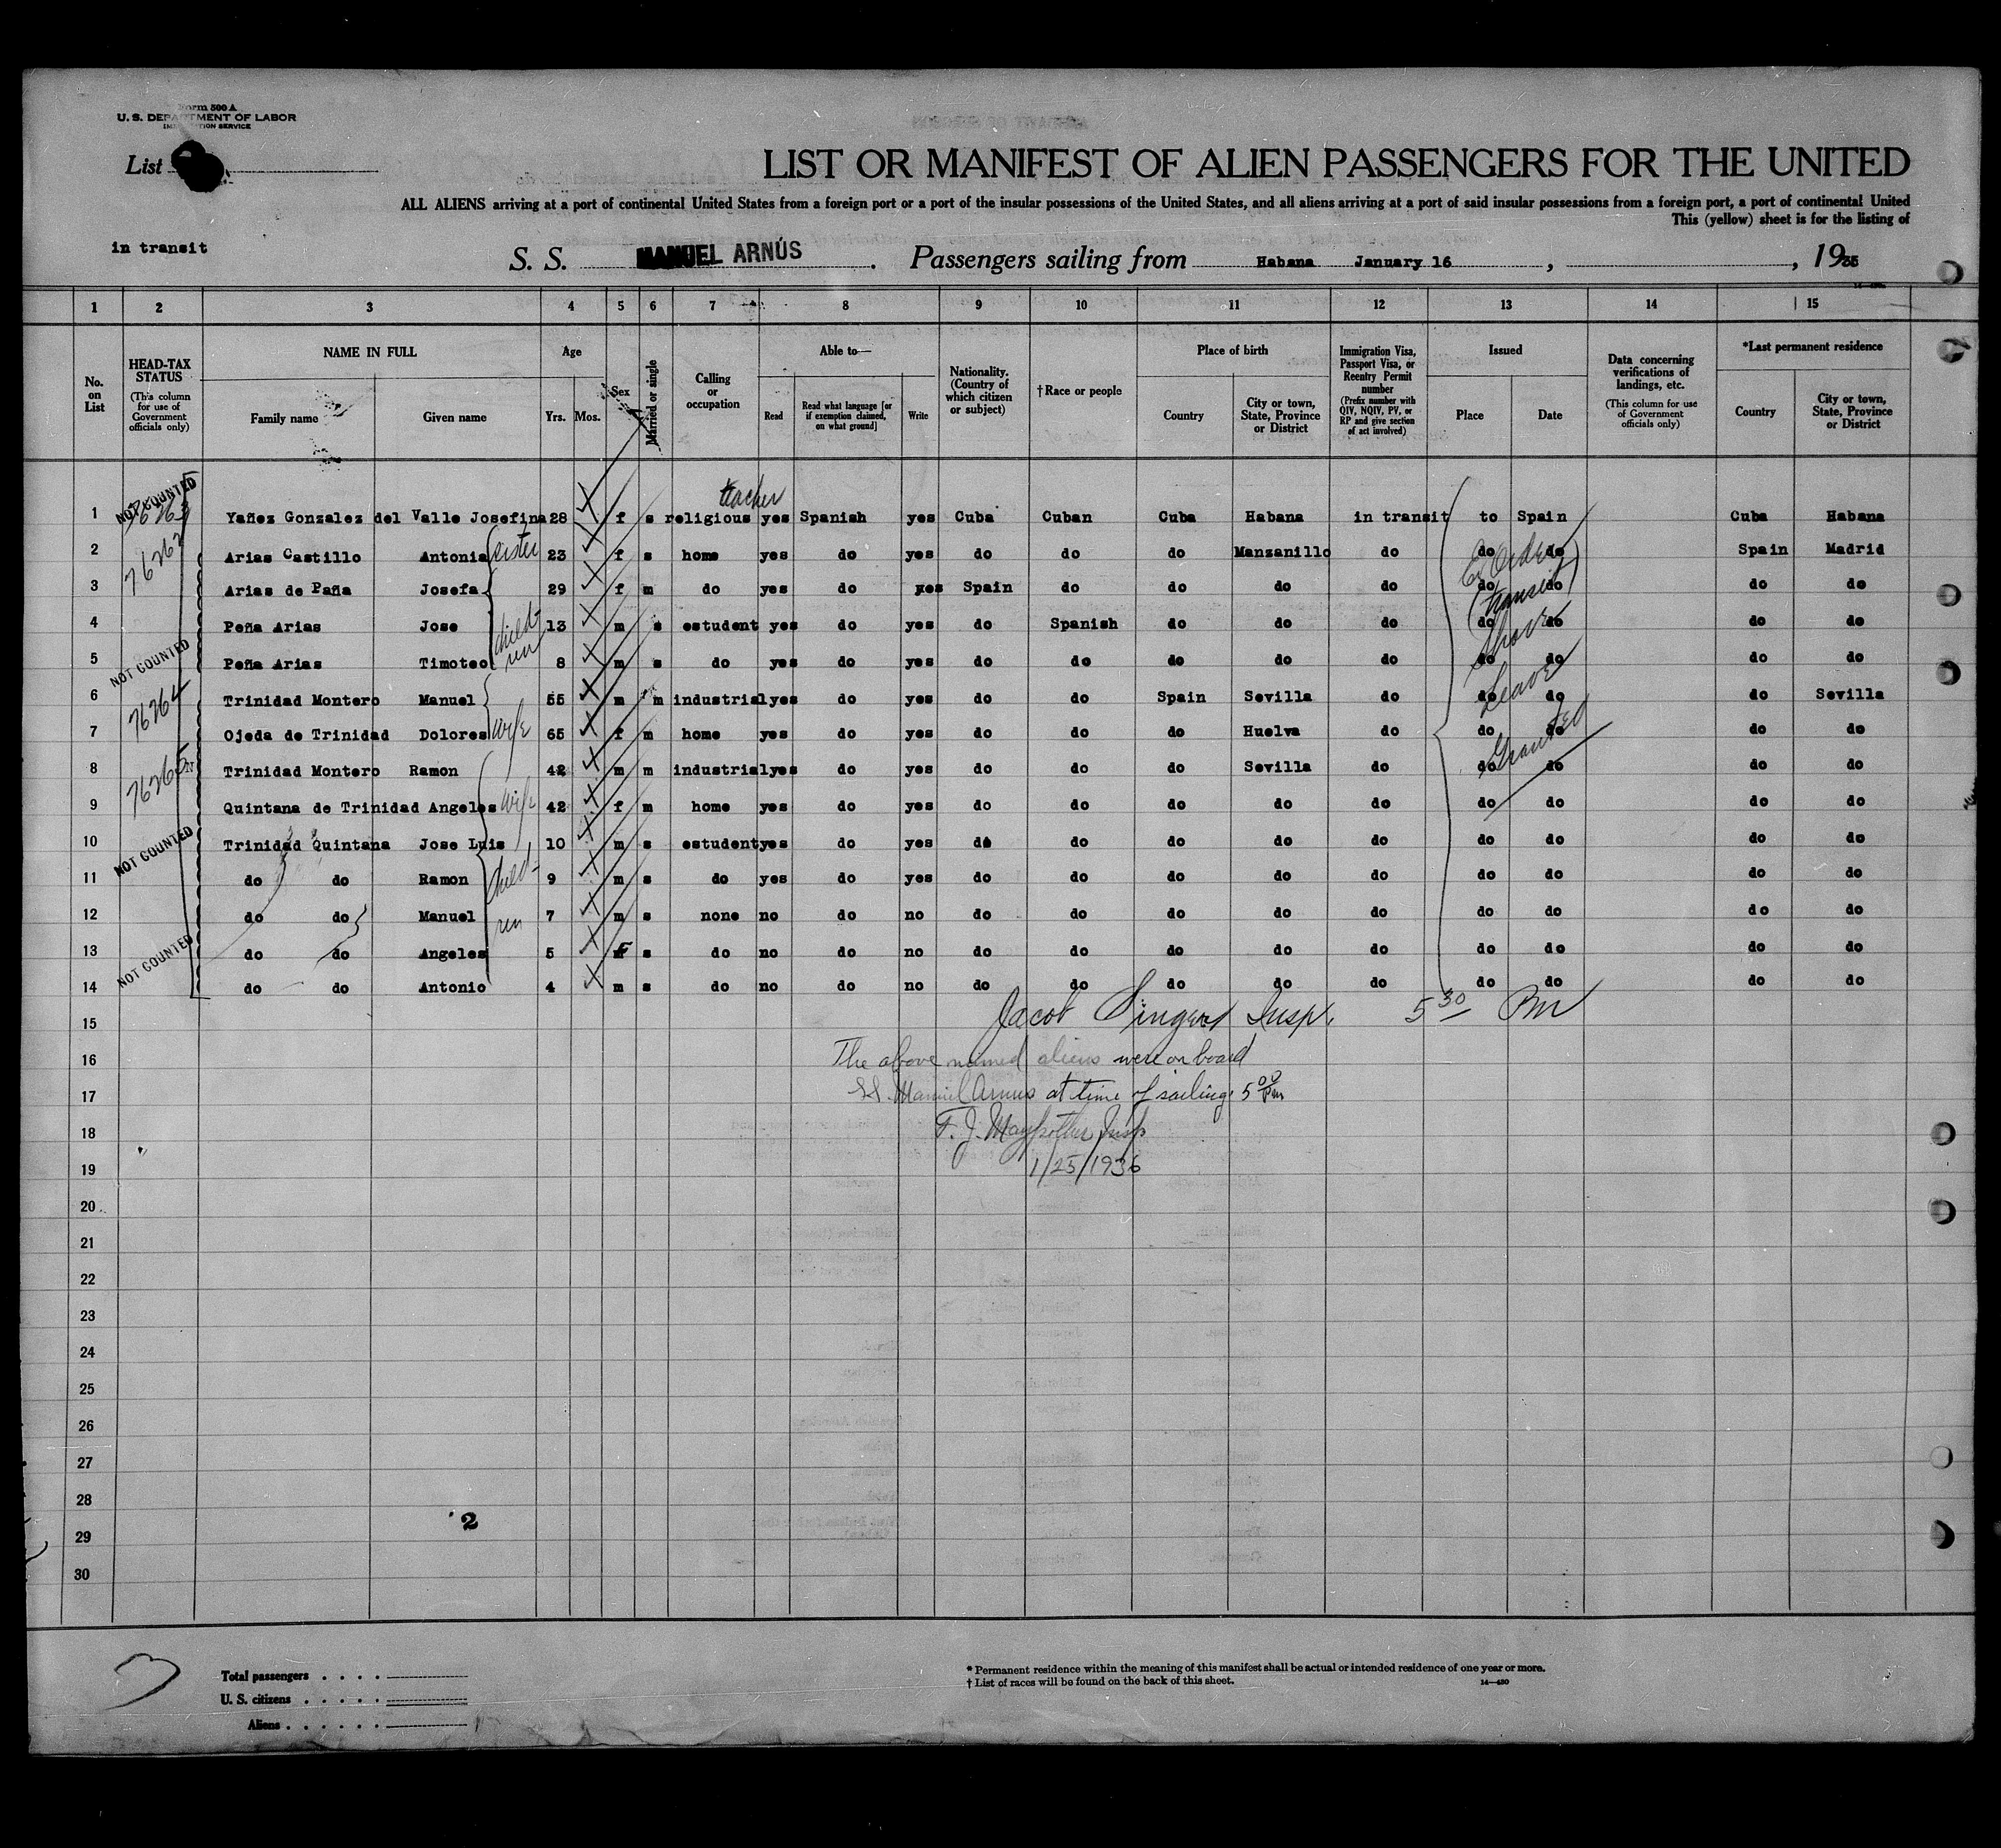 Form 500 A
U. S. DEPARTMENT OF LABOR
IMMIGRATION SERVICE
List
LIST OR MANIFEST OF ALIEN PASSENGERS FOR THE UNITED
ALL ALIENS arriving at a port of continental United States from a foreign port or a port of the insular possessions of the United States, and all aliens arriving at a port of said insular possessions from a foreign port, a port of continental United
This (yellow) sheet is for the listing of
in transit
S. S. MANUEL ARNÚS. Passengers sailing from Habana January 16, , 1936
1 2 3 4 5 6 7 8 9 10 11 12 13 14 15
No. on List
HEAD-TAX STATUS (This column for use of Government officials only)
NAME IN FULL Family name Given name
Age Yrs. Mos.
Sex
Married or single
Calling or occupation
Able to— Read Read what language [or if exemption claimed, on what ground] Write
Nationality. (Country of which citizen or subject)
†Race or people
Place of birth Country City or town, State, Province or District
Immigration Visa, Passport Visa, or Reentry Permit number (Prefix number with QIV, NQIV, PV, or RP and give section of act involved)
Issued Place Date
Data concerning verifications of landings, etc. (This column for use of Government officials only)
*Last permanent residence Country City or town, State, Province or District
teacher
1 NOT COUNTED 76263 Yañez Gonzalez del Valle Josefina 28 f s religious yes Spanish yes Cuba Cuban Cuba Habana in transit to Spain Cuba Habana
2 76262 Arias Castillo Antonia sister 23 f s home yes do yes do do do Manzanillo do do do Spain Madrid
3 Arias de Paña Josefa 29 f m do yes do yes Spain do do do do do do do do
4 Peña Arias Jose child- 13 m s estudent yes do yes do Spanish do do do do do do do
5 NOT COUNTED Peña Arias Timoteo ren 8 m s do yes do yes do do do do do do do do do
6 76264 Trinidad Montero Manuel 55 m m industrial yes do yes do do Spain Sevilla do do do do Sevilla
7 Ojeda de Trinidad Dolores wife 65 f m home yes do yes do do do Huelva do do do do do
8 76265 Trinidad Montero Ramon 42 m m industrial yes do yes do do do Sevilla do do do do do
9 Quintana de Trinidad Angeles wife 42 f m home yes do yes do do do do do do do do do
10 NOT COUNTED Trinidad Quintana Jose Luis 10 m s estudent yes do yes do do do do do do do do do
11 do do Ramon child- 9 m s do yes do yes do do do do do do do do do
12 do do Manuel ren 7 m s none no do no do do do do do do do do do
13 NOT COUNTED do do Angeles 5 F s do no do no do do do do do do do do do
14 do do Antonio 4 m s do no do no do do do do do do do do do
Transit
Shore
Leave
Granted
15 Jacob Singer Insp. 5 30 PM
16 The above named aliens were on board
17 SS. Manuel Arnus at time of sailing 5 00 Pm
18 F. J. Insp
19 1/25/1936
20
21
22
23
24
25
26
27
28
2
29
30
3
Total passengers
U. S. citizens
Aliens
* Permanent residence within the meaning of this manifest shall be actual or intended residence of one year or more.
† List of races will be found on the back of this sheet.
14—430